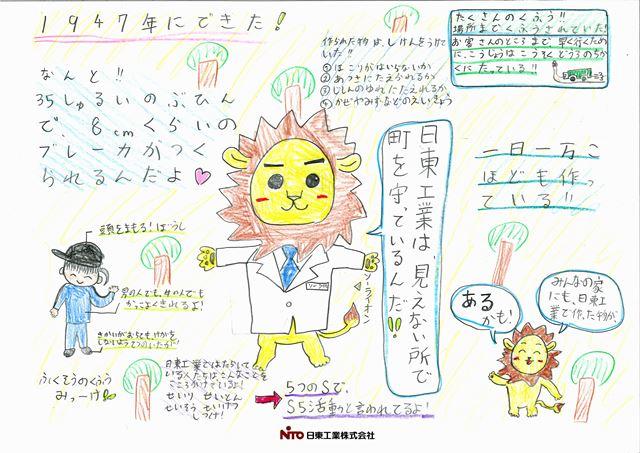 1947年にできた!
作られた物は、しけんをうけて
いた!!
①ほこりがはいらないか
②あつさにたえられるか
③じしんのゆれにたえれるか
④かぜやみずなどのえいきょう
たくさんのくふう!!
場所までくふうされていた!
お客さんのところまで、早く行くため
に、こうじょうはこうそくどうろのちか
くにたっている!!
なんと!!
35しゅるいのぶひん
で、8cmくらいの
ブレーカがつく
られるんだよ♡
日東工業は、見えない所で
町を守っているんだ!!
ソーライオン
一日一万こ
ほども作っ
ている!!
頭をまもる!ぼうし
男の人でも、女の人でも
かっこよくきれるよ!
ふくそうのくふう
みっーけ
日東工業ではたらいて
いる人たちはこんなことを
こころがけているよ!
せいり せいとん
せいそう せいけつ
しつけ!
→5つのSで、
S5活動と言われてるよ!
みんなの家
にも、日東工
業で作った物が
あるかも!
NITO 日東工業株式会社